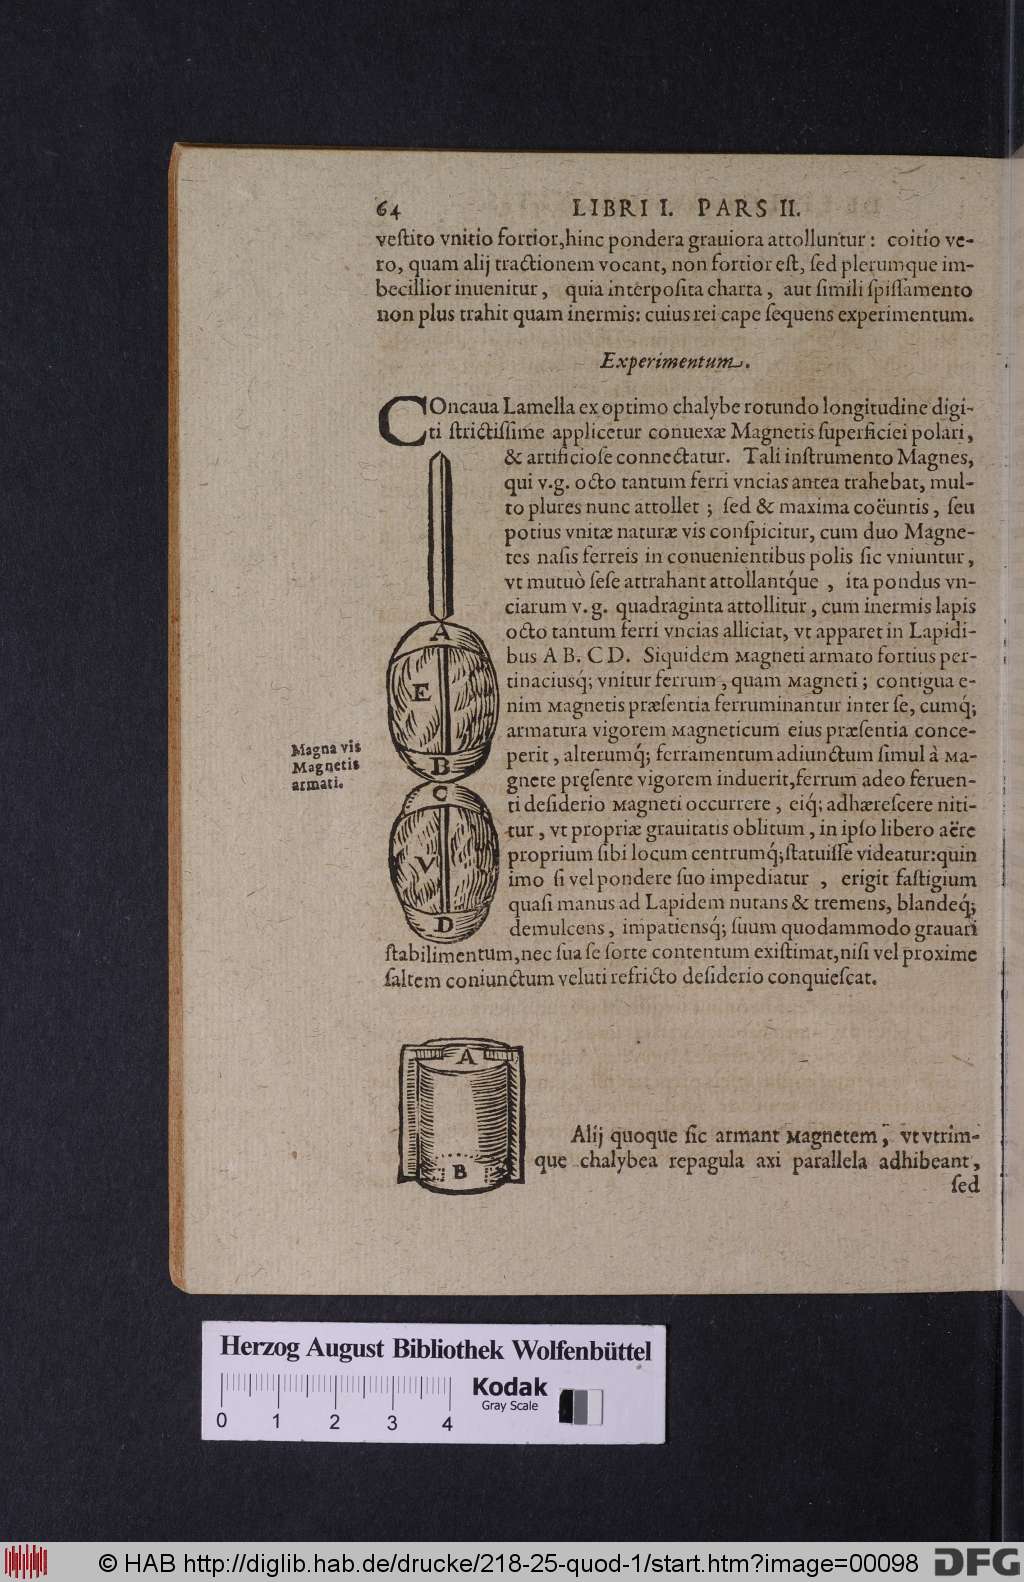 64 LIBRI I. PARS II.
veſtito vnitio fortior,hinc pondera grauiora attolluntur: coitio ve-
ro, quam alij tractionem vocant, non fortior eſt, ſed plerumque im-
becillior inuenitur, quia interpoſita charta, aut ſimili ſpiſſamento
non plus trahit quam inermis: cuius rei cape ſequens experimentum.
Experimentum.
COncaua Lamella ex optimo chalybe rotundo longitudine digi-
ti ſtrictiſſime applicetur conuexæ Magnetis ſuperficiei polari,
& artificioſe connectatur. Tali inſtrumento Magnes,
qui v.g. octo tantum ferri vncias antea trahebat, mul-
to plures nunc attollet; ſed & maxima coëuntis, ſeu
potius vnitæ naturæ vis conſpicitur, cum duo Magne-
tes naſis ferreis in conuenientibus polis ſic vniuntur,
vt mutuò ſeſe attrahant attollantq́ue, ita pondus vn-
ciarum v.g. quadraginta attollitur, cum inermis lapis
octo tantum ferri vncias alliciat, vt apparet in Lapidi-
bus A B. C D. Siquidem Magneti armato fortius per-
tinaciusq́; vnitur ferrum, quam Magneti; contigua e-
nim Magnetis præſentia ferruminantur inter ſe, cumq́;
armatura vigorem Magneticum eius præſentia conce-
perit, alterumq́; ferramentum adiunctum ſimul à Ma-
gnete pręſente vigorem induerit,ferrum adeo feruen-
ti deſiderio Magneti occurrere, eiq́; adhæreſcere niti-
tur, vt propriæ grauitatis oblitum, in ipſo libero aëre
proprium ſibi locum centrumq́;ſtatuiſſe videatur:quin
imo ſi vel pondere ſuo impediatur, erigit faſtigium
quaſi manus ad Lapidem nutans & tremens, blandeq́;
demulcens, impatiensq́; ſuum quodammodo grauari
ſtabilimentum,nec ſua ſe ſorte contentum exiſtimat,niſi vel proxime
ſaltem coniunctum veluti refricto deſiderio conquieſcat.
Magna vis
Magnetis
armati.
A
E
B
C
V
D
A
B
Alij quoque ſic armant Magnetem, vt vtrim-
que chalybea repagula axi parallela adhibeant,
ſed
Herzog August Bibliothek Wolfenbüttel
Kodak
Gray Scale
0 1 2 3 4
© HAB http://diglib.hab.de/drucke/218-25-quod-1/start.htm?image=00098
DFG